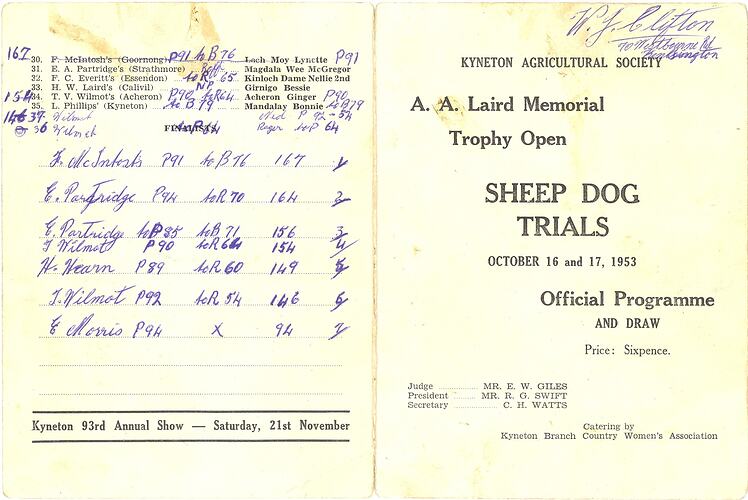 167 30. F. McIntosh's (Goornong) P91 to B76 Loch Moy Lynette P91
31. E. A. Partridge's (Strathmore) Magdala Wee McGregor
32. F. C. Everitt's (Essendon) to R 65 Kinloch Dame Nellie 2nd
33. H. W. Laird's (Calivil) NP Girnigo Bessie
154 34. T. V. Wilmot's (Acheron) P90 to R64 Acheron Ginger P90
35. L. Phillips' (Kyneton) to B 79 Mandalay Bonnie to B79
146 37. Wilmot Ned P 92 - 54
36 Wilmot Roger to P 64
FINALISTS
F. McIntosh P91 to B76 167 1
E. Partridge P94 to R70 164 2
E. Partridge to P85 to B 71 156 3
T Wilmot P90 to R64 154 4
H. Hearn P89 to R60 149 5
T. Wilmot P92 to R 54 146 6
E Morris P94 X 94 7
Kyneton 93rd Annual Show — Saturday, 21st November
W. J. Clifton
70 Westbourne Rd
Kensington
KYNETON AGRICULTURAL SOCIETY
A. A. Laird Memorial
Trophy Open
SHEEP DOG
TRIALS
OCTOBER 16 and 17, 1953
Official Programme
AND DRAW
Price: Sixpence.
Judge ........ MR. E. W. GILES
President ........ MR. R. G. SWIFT
Secretary ........ C. H. WATTS
Catering by
Kyneton Branch Country Women's Association